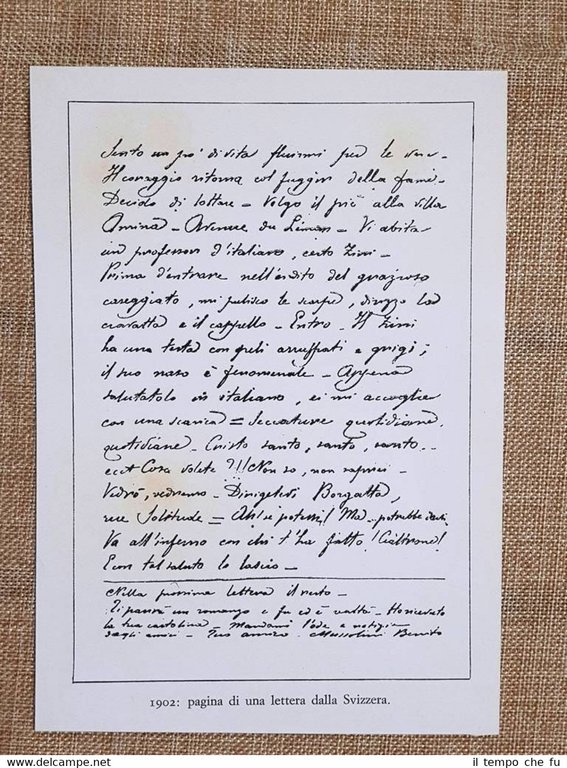 Sento un po' di vita fluirmi per le vene -
Il coraggio ritorna col fuggir della fame -
Decido di lottare - Volgo il piè alla villa
Annina - Avenue du Léman - Vi abita
un professore d'italiano, certo Zini -
Prima d'entrare nell'àndito del grazioso
caseggiato, mi pulisco le scarpe, dirizzo la
cravatta e il cappello - Entro. Il Zini
ha una testa con peli arruffati e grigi;
il suo naso è fenomenale - Appena
salutatolo in italiano, ei mi accoglie
con una scarica = Seccature quotidiane,
quotidiane - Cristo santo, santo, santo...
ecct Cosa volete?!! Non so, non saprei -
Vedrò, vedremo - Dirigetevi Borgatta,
rue Solitude = Ah! se potessi! Ma.. potrebbe darsi.
Va all'inferno con chi t'ha fatto! Cialtrone!
E con tal saluto lo lascio -
Nella prossima lettera il resto -
Ti parrà un romanzo e fu ed è realtà - Ho ricevuto
la tua cartolina - Mandami l'ode e notizie
dagli amici - Tuo amico. Mussolini Benito
1902: pagina di una lettera dalla Svizzera.
il tempo che fu